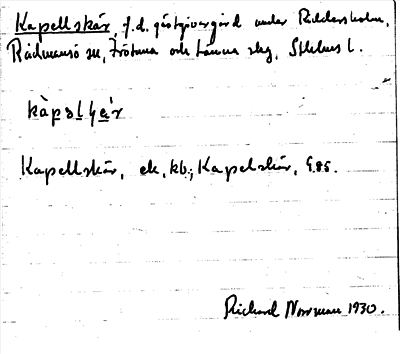 Kapellskär, f.d. gästgivargård under Riddersholm,
Rådmansö sn, Frötuna och Länna skg, Sthlms l.
kàpəlɧæ'r
Kapellskär, ek, kb; Kapelskär, G.85.
Richard Norrman 1930.